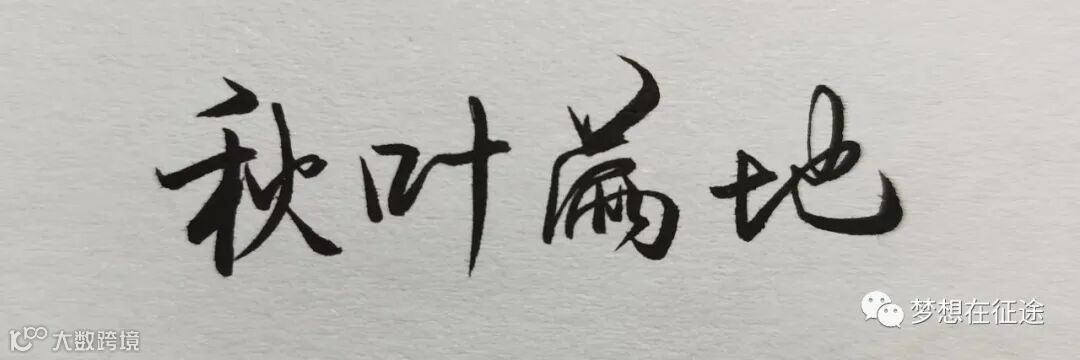 秋叶满地
梦想在征途
大数跨境